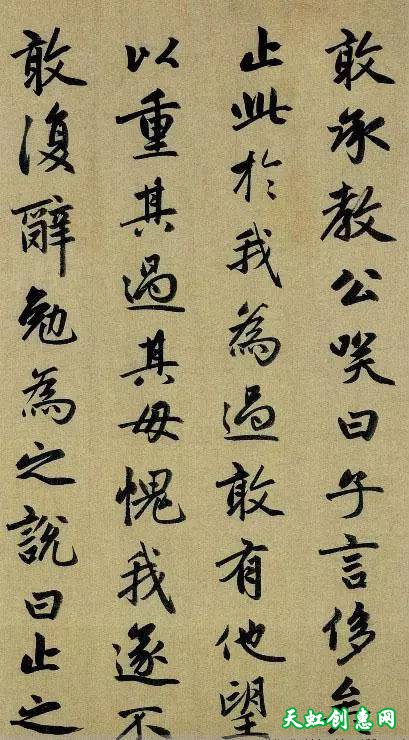 敢承教公咲曰子言侈矣
止此於我為過敢有他望
以重其過其毋愧我遂不
敢復辭勉為之說曰止之
天虹创惠网